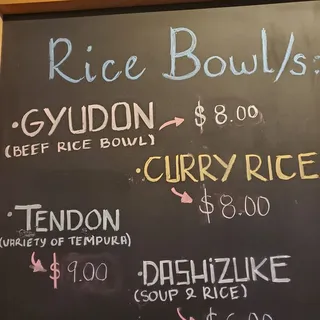 Rice Bowl/s:
·GYUDON → $8.00
(BEEF RICE BOWL)
·CURRY RICE
$8.00
·TENDON
(VARIETY OF TEMPURA)
$9.00
·DASHiZUKE
(SOUP & RICE)